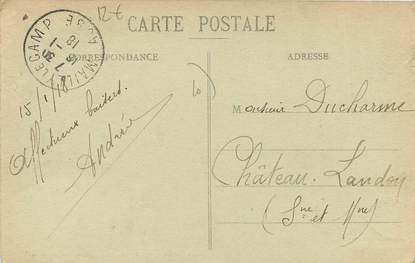 12 €
CARTE POSTALE
CORRESPONDANCE
ADRESSE
MAILLY LE CAMP AUBE
15/1/18
Affectueux baisers.
André
10
Monsieur Ducharme
Château-Landon
(Sne et Mne)